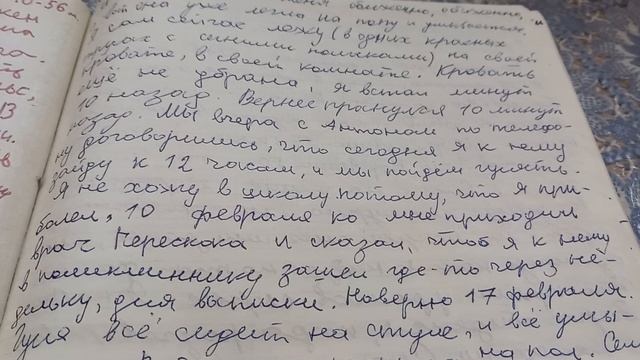 10-56
вый она уже легла на попу и умывается.
Я сам сейчас лежу (в одних красных
трусах с синими полосками) на своей
кровате, в своей комнате. Кровать
ещё не убрана, я встал минут
10 назад. Вернее пранулся 10 минут
назад. Мы вчера с Антоном по телефо-
ну договорились, что сегодня я к нему
зайду к 12 часам, и мы пойдём гулять.
Я не хожу в школу потому, что я при-
болел, 10 февраля ко мне приходил
врач Перескока и сказал, чтоб я к нему
в поликлиннику зашёл где-то через не-
дельку, для выписки. Наверно 17 февраля.
Дуня всё сидит на стуле, и всё умы-
на пол.